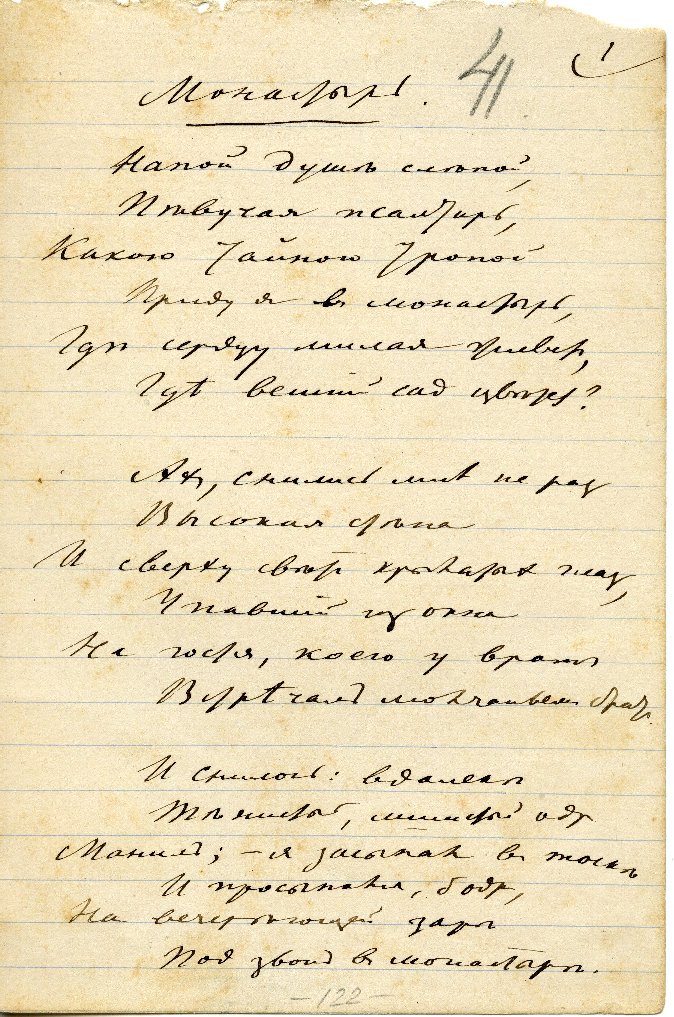 41
1
Монастырь.
Напой душѣ слѣпой,
Пѣвучая псалтырь,
Какою тайною тропой
Приду я въ монастырь,
Гдѣ сердцу милая живет,
Гдѣ вешній сад цвѣтет?
Ах, снилась мнѣ не раз
Высокая стѣна
И сверху свѣт крылатых глаз,
Упавшій из окна
На гостя, коего у врат
Встрѣчалъ молчаньем брат.
И снилось: вдалекѣ
Тѣнистый, мшистый одр
Манилъ; – я засыпал в тоскѣ
И просыпался, бодр,
На вечерѣющей зарѣ
Под звонъ в монастырѣ.
– 122 –